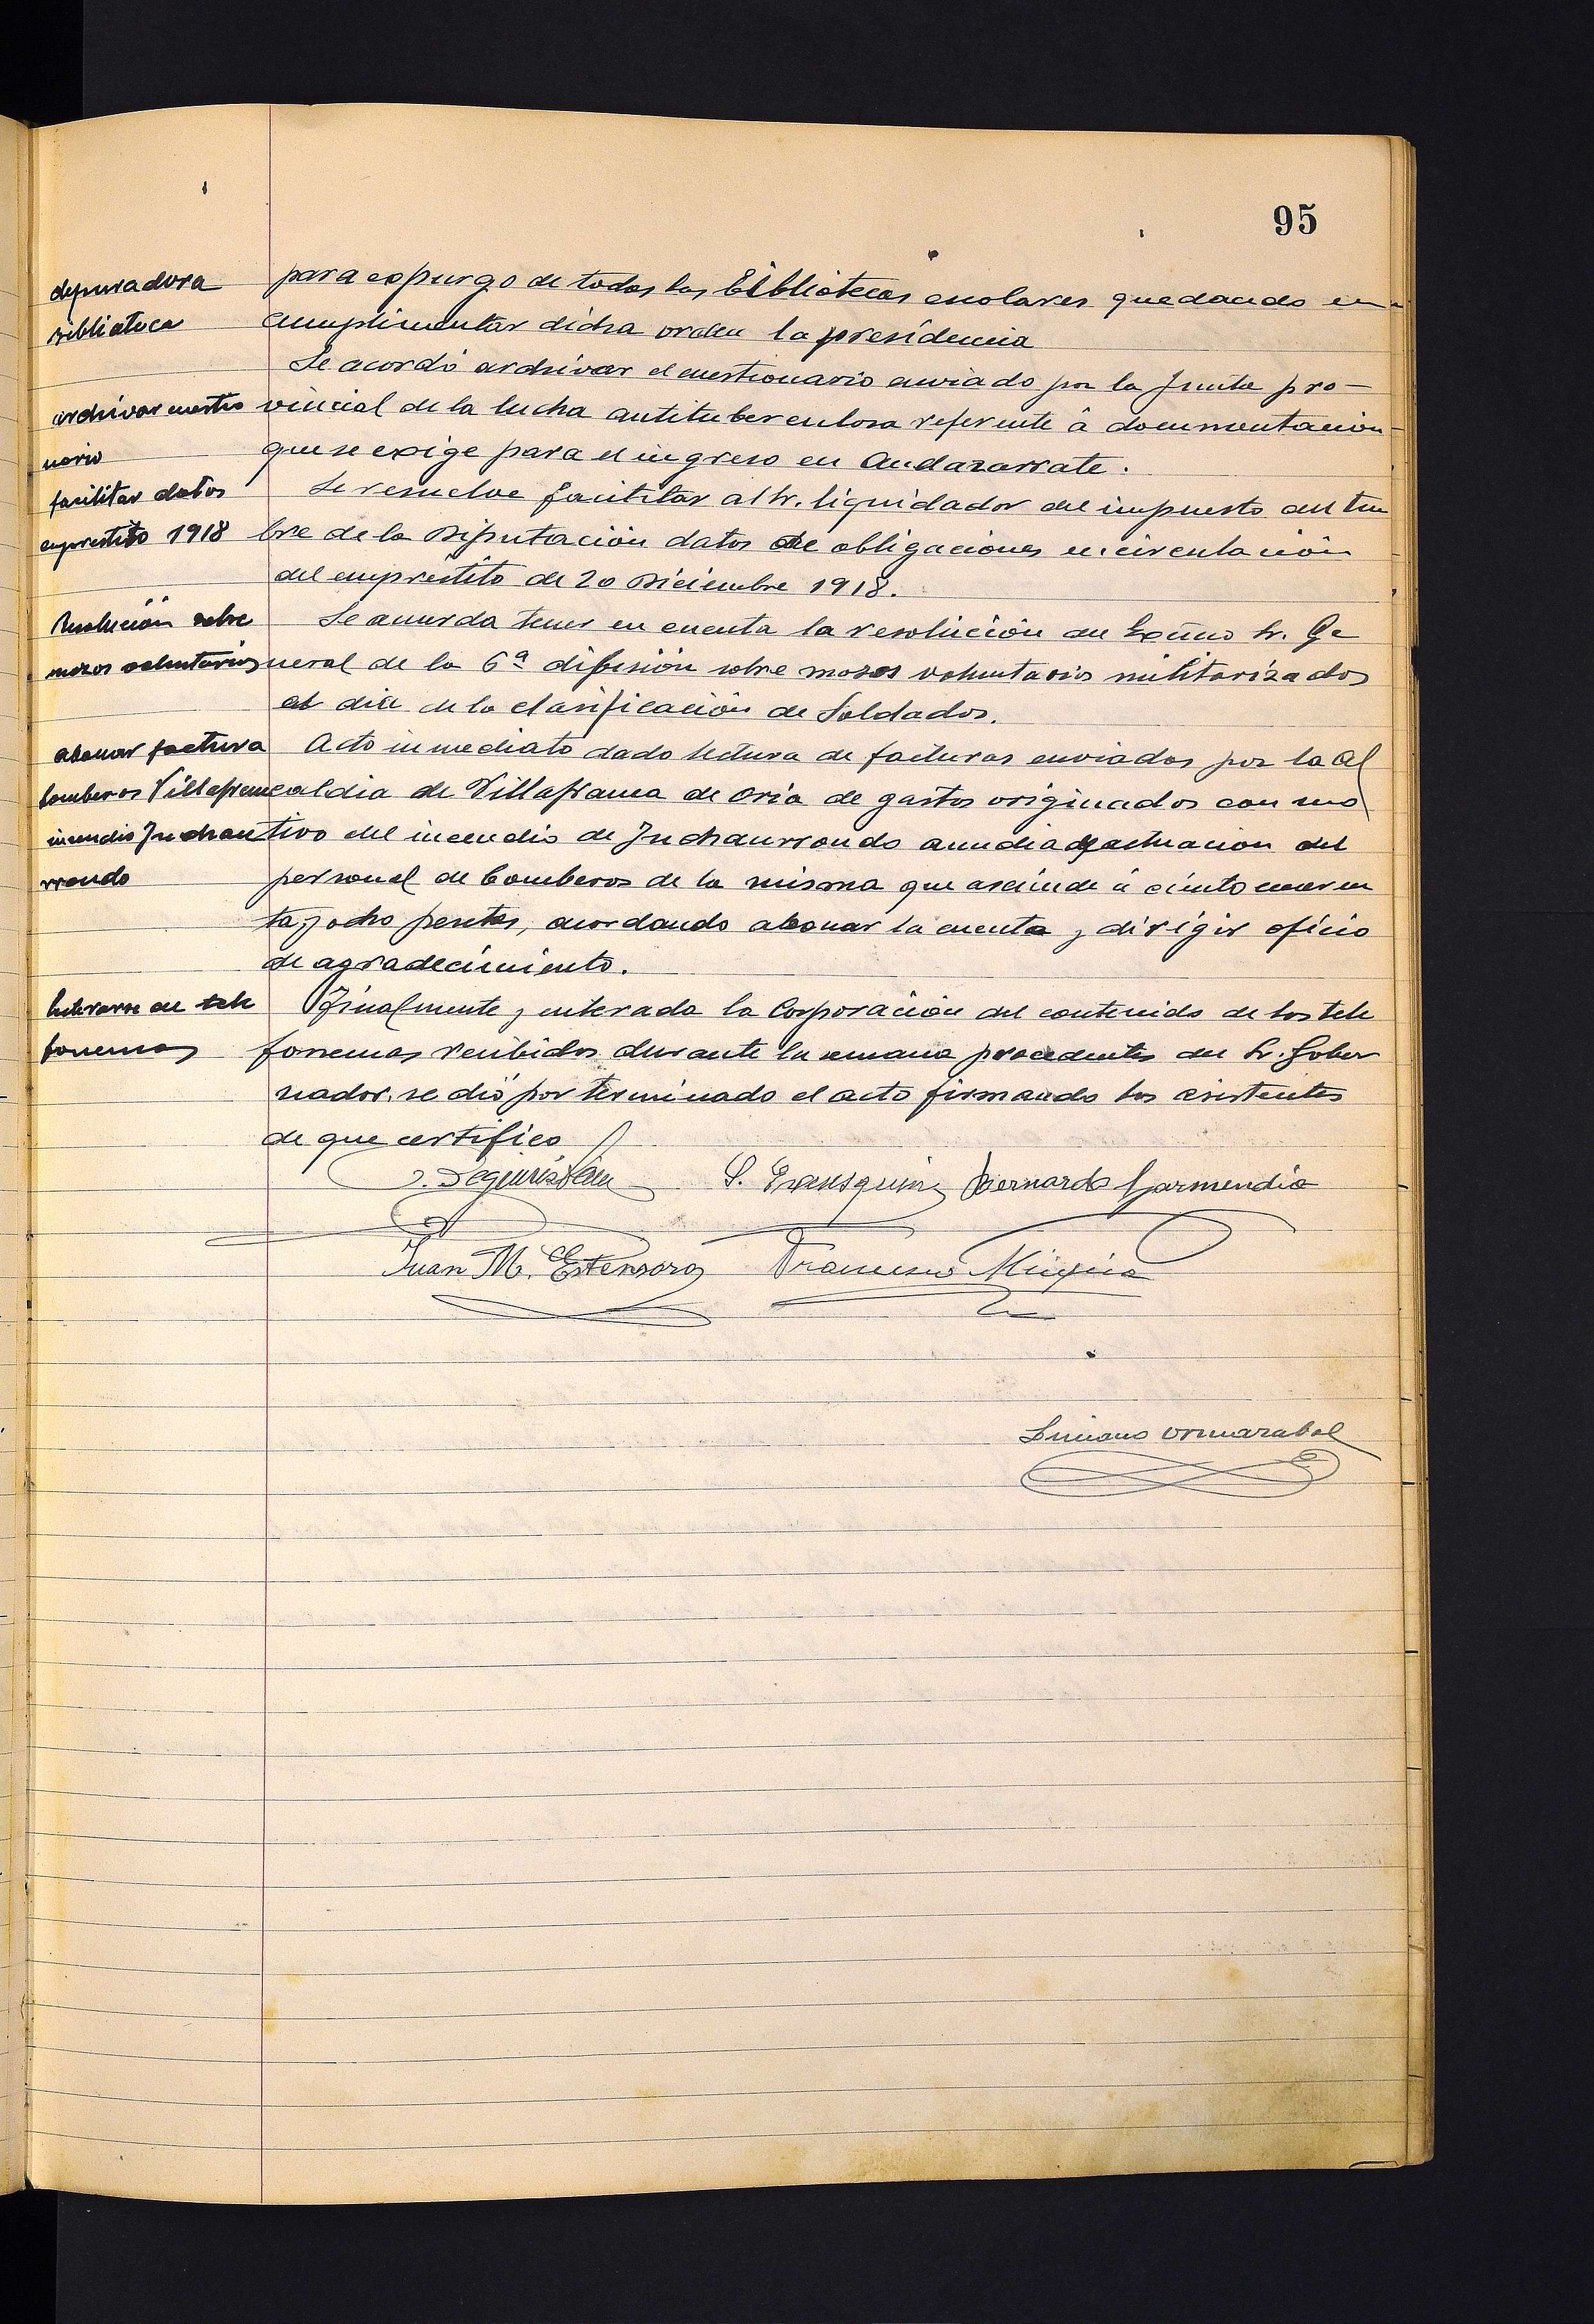 95
depuradora
Biblioteca
para expurgo de todas las Bibliotecas escolares quedando en
cumplimentar dicha orden la presidencia
Se acordó archivar el cuestionario enviado por la Junta pro-
archivar cuestio
nario
vincial de la lucha antituberculosa referente á documentación
que se exige para el ingreso en Andazarrate.
facilitar datos
emprestito 1918
Se resuelve facilitar al Sr. liquidador del impuesto del tim
bre de la Diputación datos de obligaciones en circulación
del empréstito de 20 Diciembre 1918.
Resolución sobre
mozos voluntarios
Se acuerda tener en cuenta la resolución del Excmo Sr. Ge
neral de la 6ª división sobre mozos voluntarios militarizados
el dia de la clasificación de Soldados.
abonar factura
bomberos Villafranca
incendio Inchau
rrondo
Acto inmediato dado lectura de facturas enviadas por la Al
caldia de Villafranca de Oria de gastos originados con mo
tivo del incendio de Inchaurrondo actuacion del
personal de bomberos de la misma que asciende á ciento cuaren
ta y ocho pesetas, acordando abonar la cuenta y dirigir oficio
de agradecimiento.
Enterarse de tele
fonemas
Finalmente y enterada la Corporación del contenido de los tele
fonemas recibidos durante la semana procedentes del Sr. Gober
nador, se dió por terminado el acto firmando los asistentes
de que certifico
Bernardo Garmendia
Juan M. Estensoro Francisco Múgica
Luciano Ormazabal